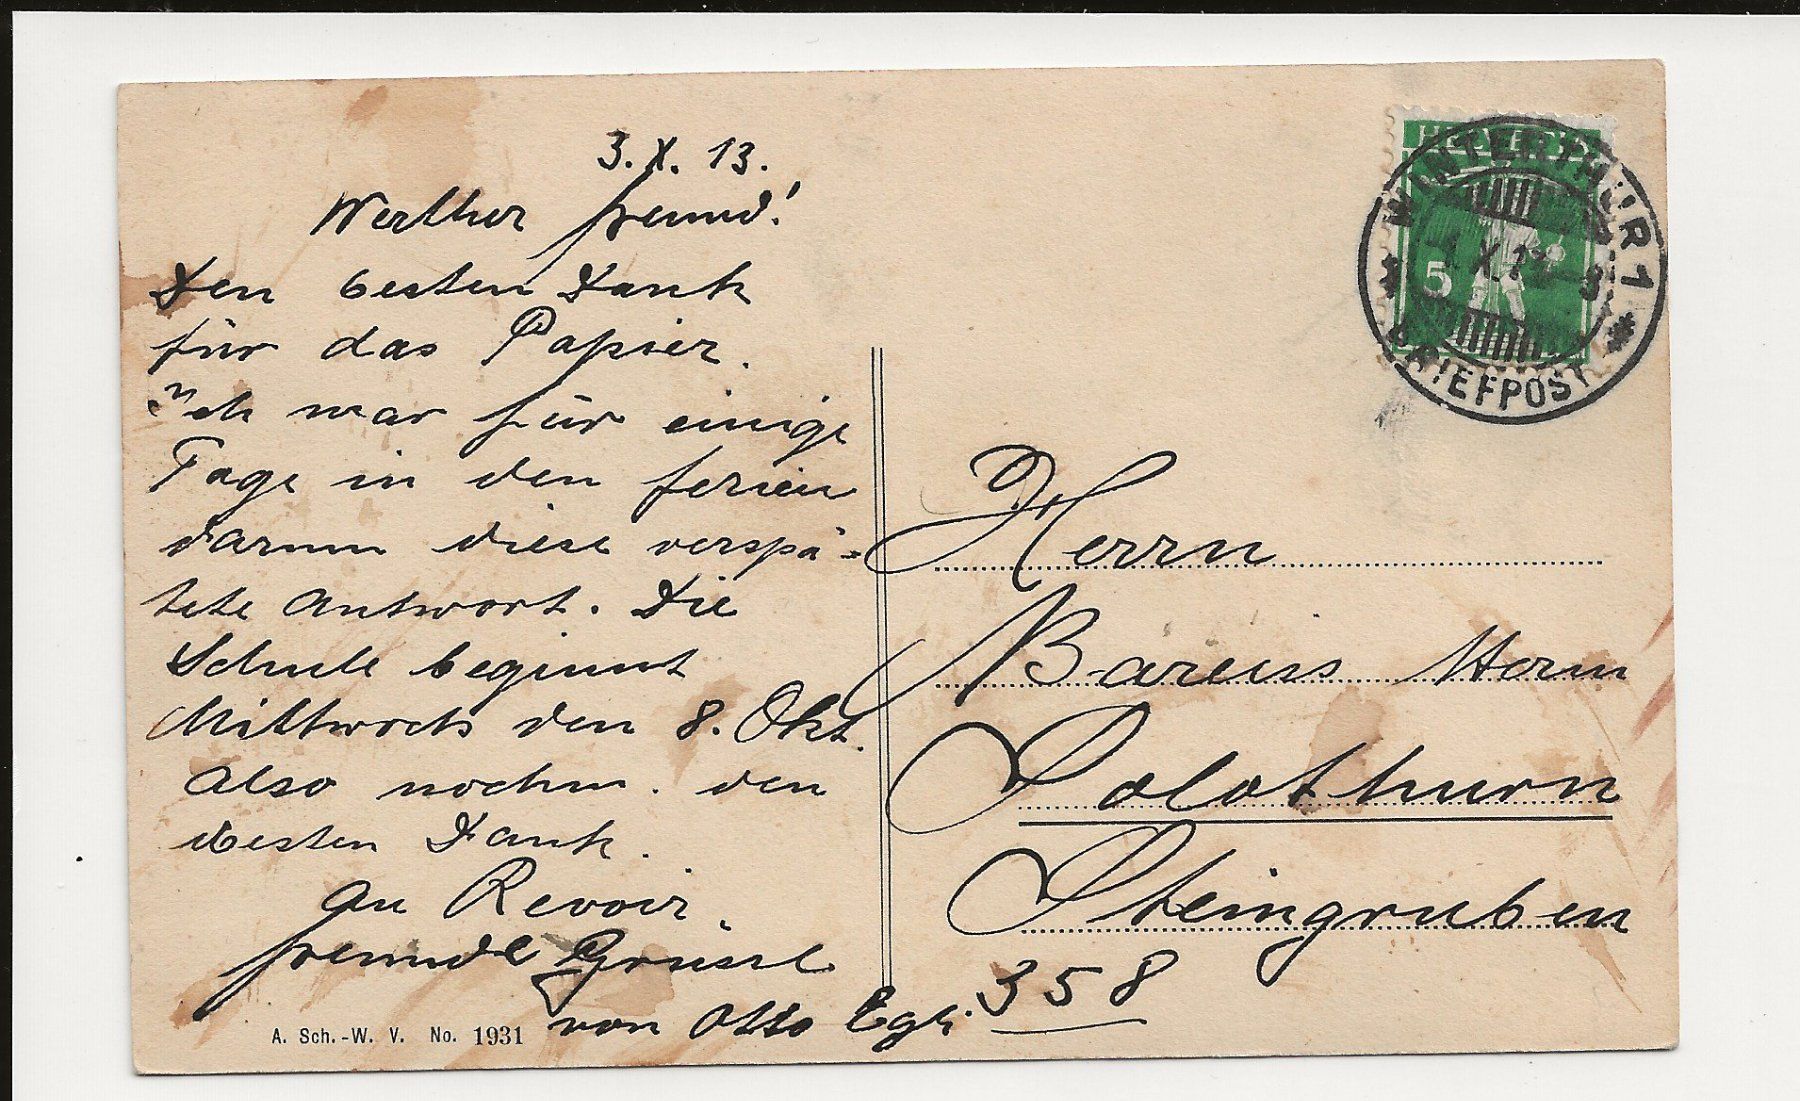 3. X. 13.
Werther freund!
Den besten Dank
für das Papier.
Ich war für einige
Tage in den ferien
darum diese verspä-
tete Antwort. Die
Schule beginnt
Mittwoch den 8. Okt.
Also nochm. den
besten Dank.
Au Revoir.
freundl Grüsse
von Otto Egli
A. Sch.-W. V. No. 1931
HELVETIA
5
WINTERTHUR 1
BRIEFPOST
Herrn
Bareiss Herm
Solothurn
Steingruben
358